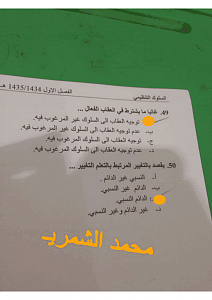 السلوك التنظيمي الفصل الاول 1435/1434 هـ
49. غالبا ما يشترط في العقاب الفعال ...
توجيه العقاب الى السلوك غير المرغوب فيه.
ب. عدم توجيه العقاب الى السلوك المرغوب فيه.
ج. توجيه العقاب الى السلوك المرغوب فيه.
د. عدم توجيه العقاب الى السلوك غير المرغوب فيه.
50. يقصد بالتغيير المرتبط بالتعلم التغيير ...
أ. النسبي غير الدائم.
ب. الدائم غير النسبي.
الدائم النسبي.
د. غير الدائم وغير النسبي.
محمد الشمري